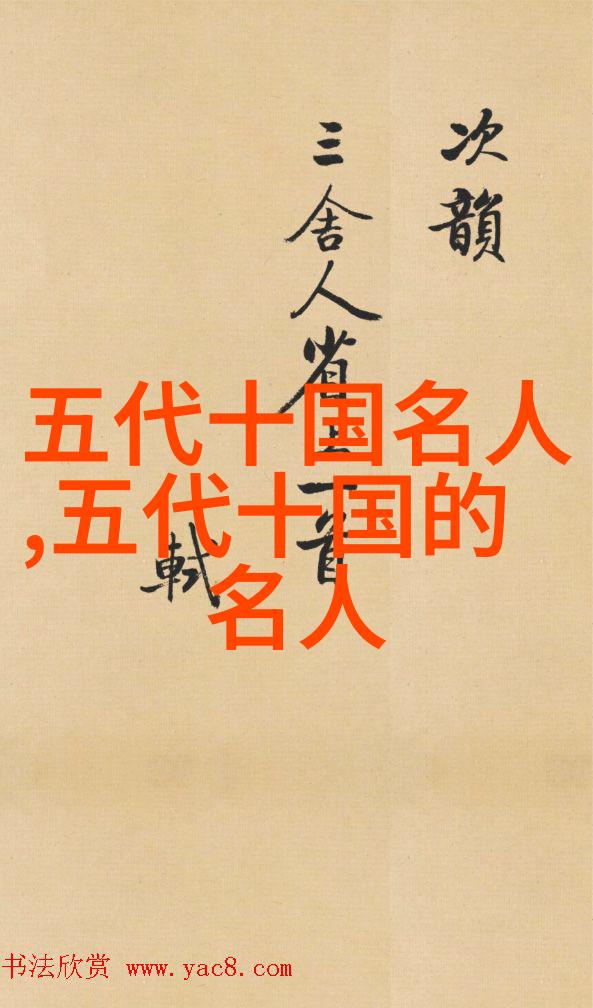 次韻
三舍人省上一首
軾
五代十国名人
,五代十国的
名人
书法欣赏 www.yac8.com